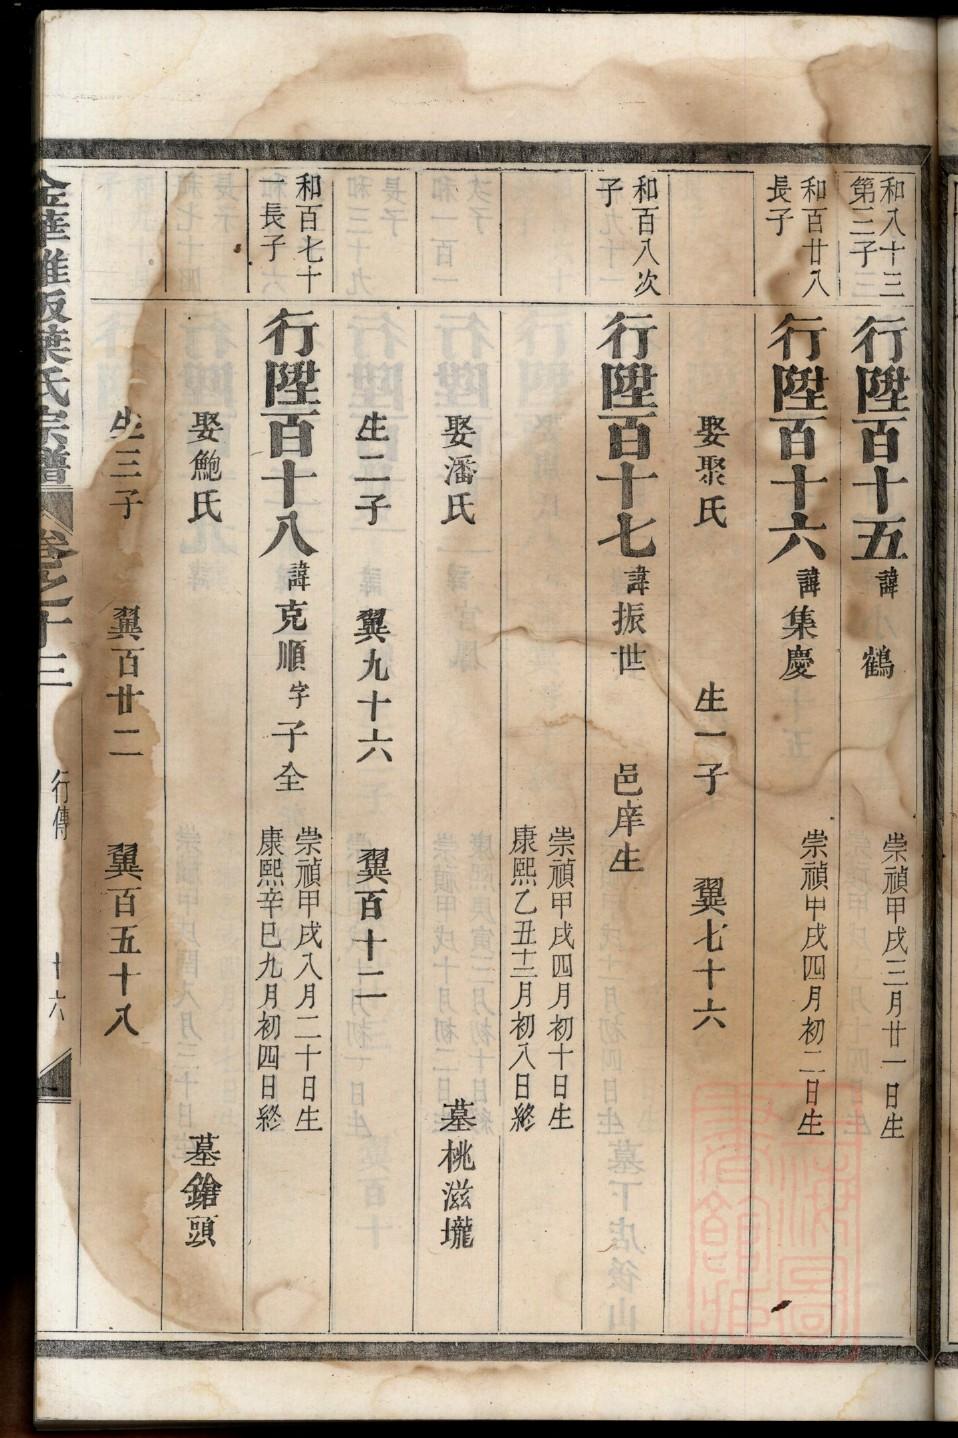 和八十三
第三子
行陞百十五 諱 小鶴
崇禎甲戌三月廿一日生
和百廿八
長子
行陞百十六 諱 集慶
崇禎甲戌四月初二日生
娶聚氏 生一子 翼七十六
和百八次
子
行陞百十七 諱 振世 邑庠生
崇禎甲戌四月初十日生
康熙乙丑十二月初八日終
娶潘氏 墓桃滋壠
生二子 翼九十六 翼百十二
和百七十
長子
行陞百十八 諱 克順 字 子全
崇禎甲戌八月二十日生
康熙辛巳九月初四日終
娶鮑氏 墓鎗頭
生三子 翼百廿二 翼百五十八
金華雅畈葉氏宗譜 卷之十三 行傳 十六